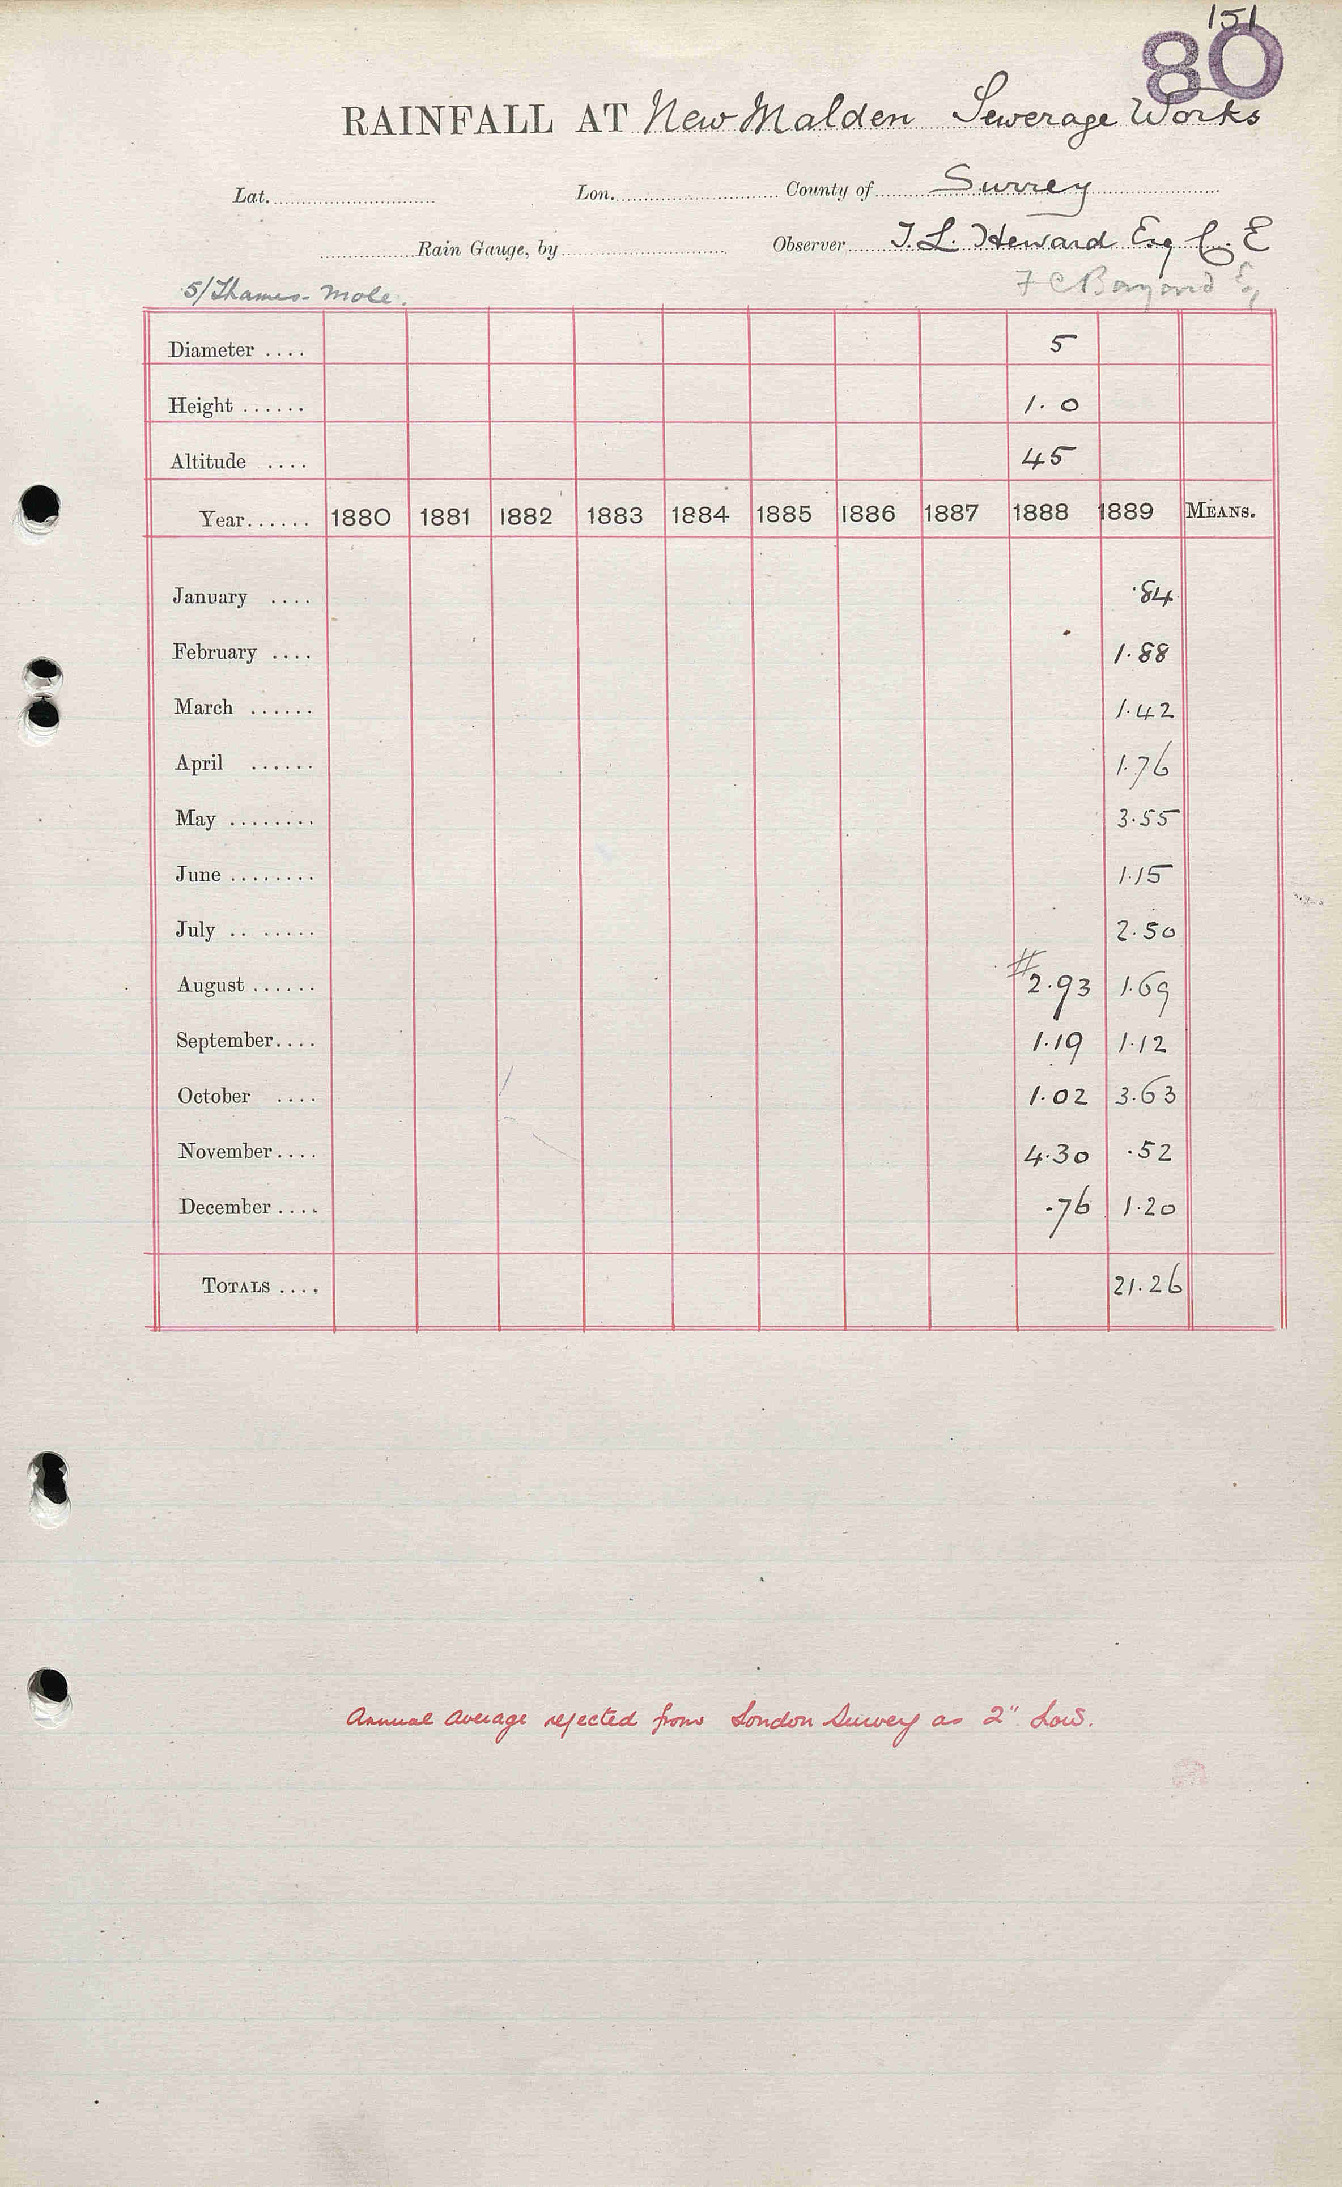 151
80
RAINFALL AT New Malden Sewerage Works
Lat. Lon. County of Surrey
Rain Gauge, by Observer T. L. Heward Esq C. E
5/Thames-Mole. F C
Diameter .... 5
Height ...... 1.0
Altitude .... 45
Year...... 1880 1881 1882 1883 1884 1885 1886 1887 1888 1889 MEANS.
January .... .84
February .... 1.88
March ...... 1.42
April ...... 1.76
May ........ 3.55
June ........ 1.15
July .. ...... 2.50
August ...... #2.93 1.69
September.... 1.19 1.12
October .... 1.02 3.63
November.... 4.30 .52
December .... .76 1.20
TOTALS .... 21.26
Annual Average rejected from London Survey as 2" Low.